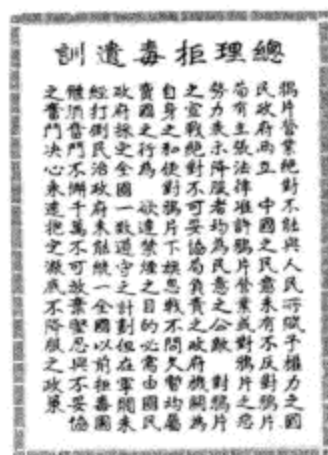 總理拒毒遺訓
鴉片營業絕對不能與人民所賦予權力之國
民政府兩立　中國之民意未有不反對鴉片
苟有主張法律准許鴉片營業或對鴉片之惡
勢力表示降服者均為民意之公敵　對鴉片
之宣戰絕對不可妥協苟負責之政府機關為
自身之私便對鴉片下旗息戰不問久暫均屬
賣國之行為　欲達禁煙之目的必需由國民
政府採定全國一致遵守之計劃但在軍閥未
經打倒民治政府未能統一全國以前拒毒團
體須奮鬥不懈千萬不可放棄堅忍與不妥協
之奮鬥決心來達把定澈底不降服之政策